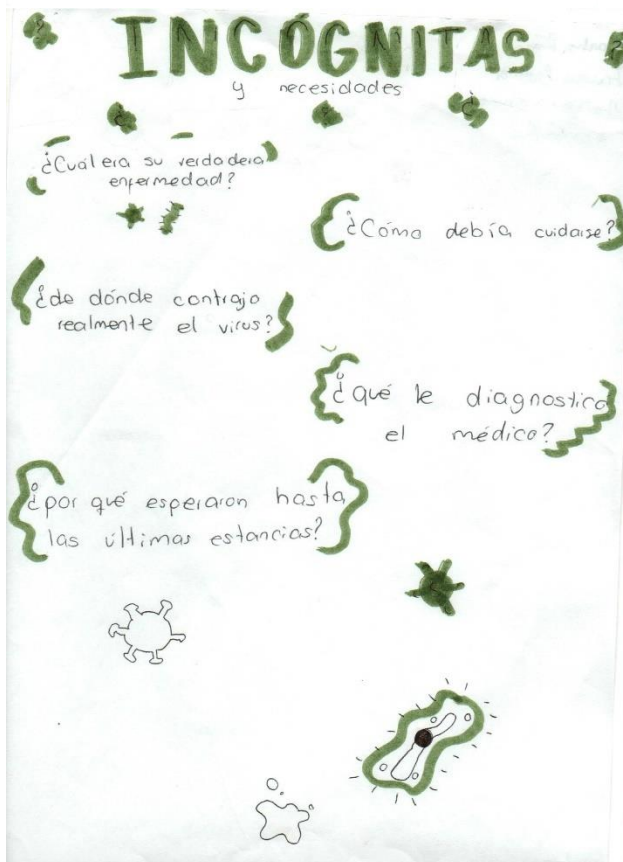 INCÓGNITAS
y necesidades
¿Cuál era su verdadera
enfermedad?
¿Cómo debía cuidarse?
¿de dónde contrajo
realmente el virus?
¿qué le diagnostico
el médico?
¿por qué esperaron hasta
las últimas estancias?